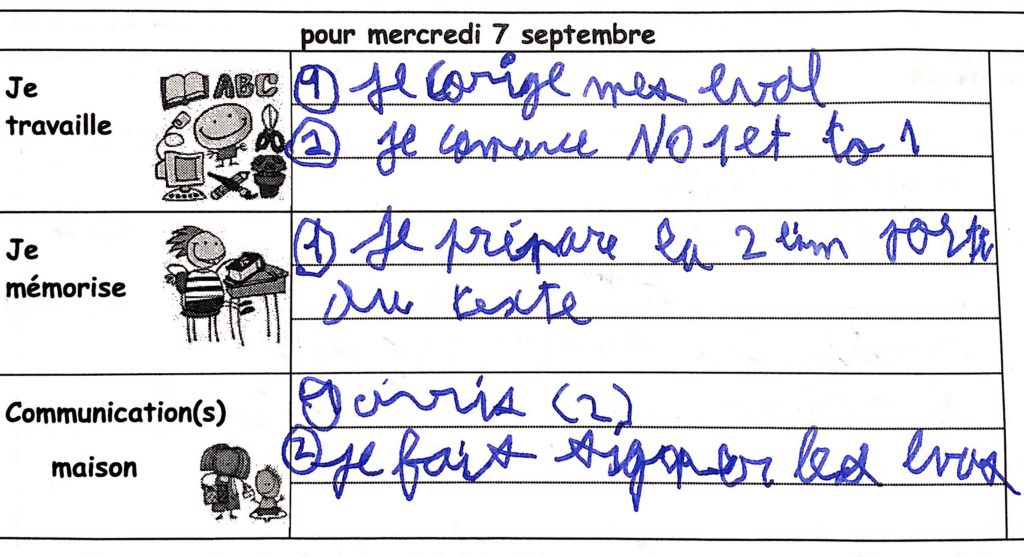 pour mercredi 7 septembre
Je
travaille
ABC
① Je corige mes eval
② Je comance NO 1 et to 1
Je
mémorise
① Je prépare la 2 em
texte
Communication(s)
maison
(2)
② je fait signer les evas